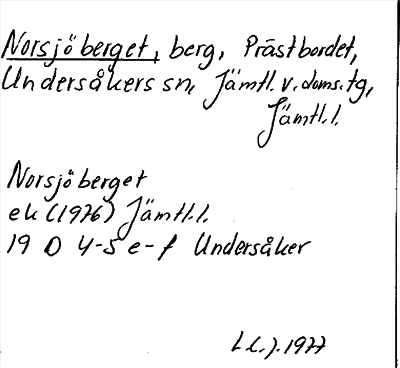 Norsjöberget, berg, Prästbordet,
Undersåkers sn, Jämtl. v. doms. tg,
Jämtl. l.
Norsjöberget
ek (1976) Jämtl. l.
19 D 4-5 e-f Undersåker
1977